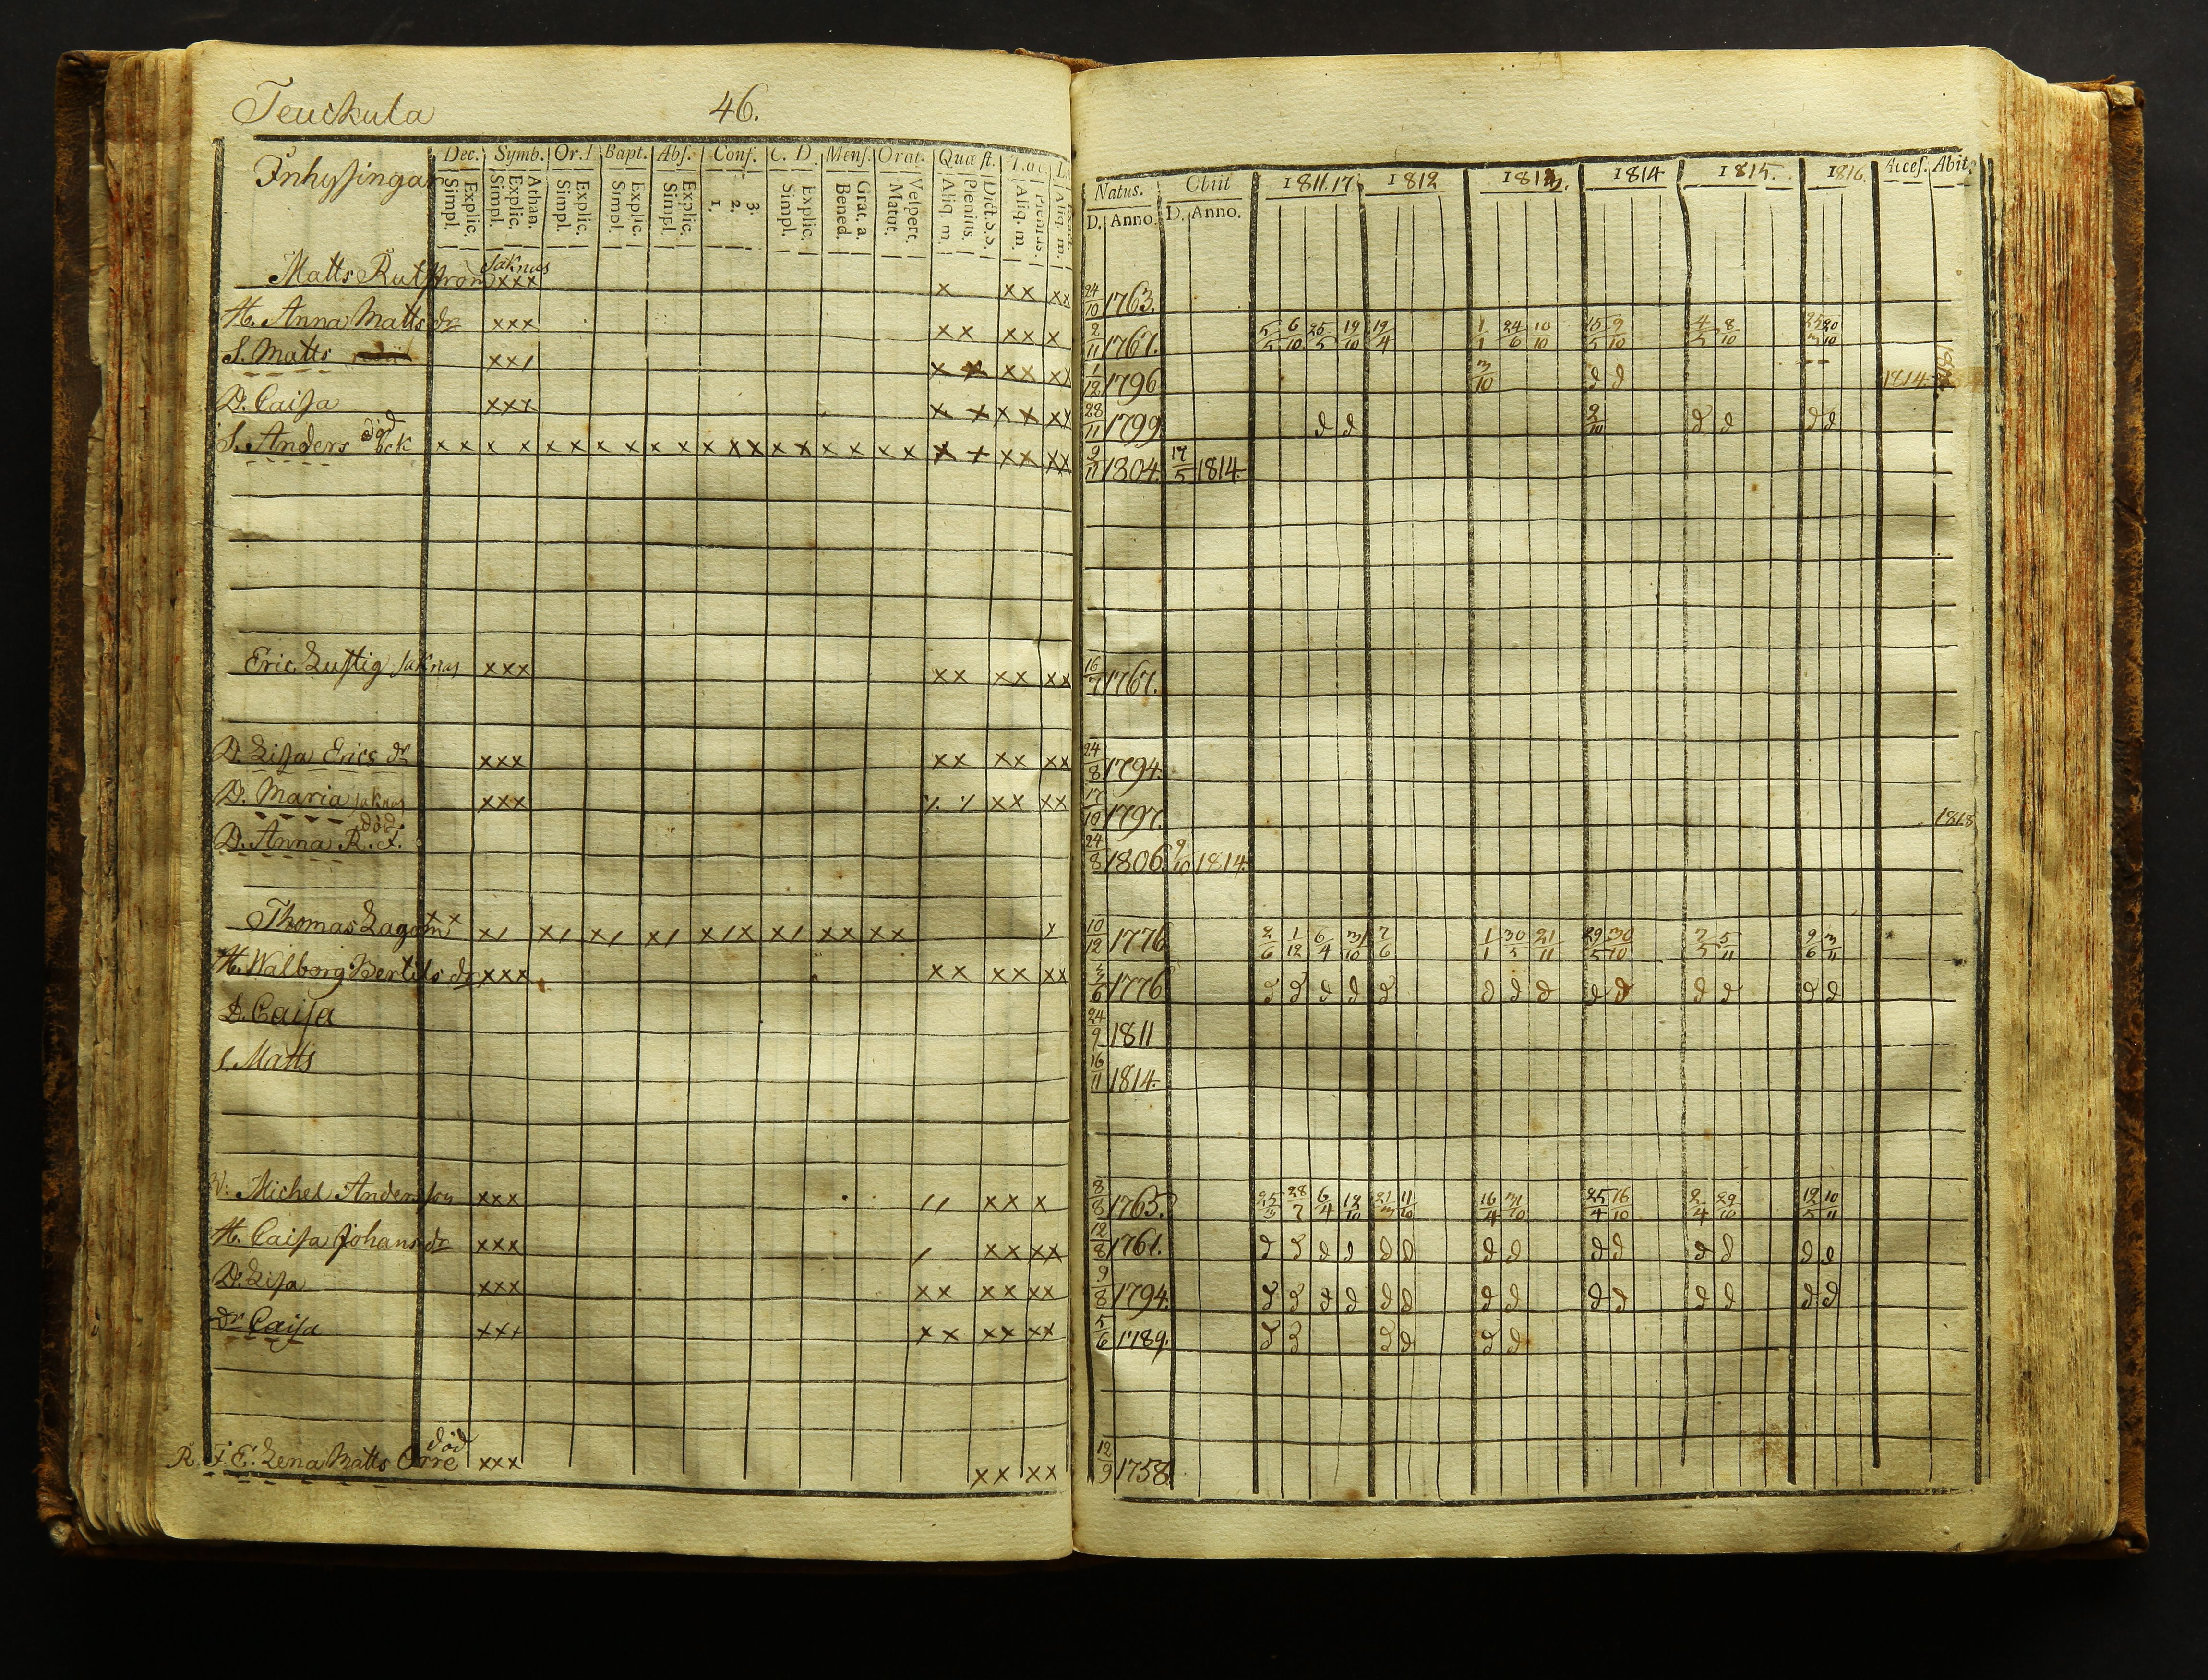 Teuckula 46.
Inhysingar
Dec. Symb. Or. D Bapt. Abs. Conf. C. D. Mens. Orat. Quæst.
Explic. Simpl. Athan. Explic. Simpl. Explic. Simpl. Explic. Simpl. Explic. Simpl. 3. 2. 1. Explic. Simpl. Grat. a. Bened. Vespert. Matut. Dict. S.S. Plenius. Aliq. m. Plenius. Aliq. m. Aliq. m.
Natus. Obiit 1811.17 1812 1813. 1814 1815. 1816. Acces. Abit.
D. Anno. D. Anno.
Matts Rutström saknas xxx x xx xx 24/10 1763.
H. Anna Matts dr xxx xx xx x 2/11 1767. 5/5 6/10 25/5 19/10 19/4 1/1 24/6 10/10 15/5 9/10 4/5 8/10 25/3 20/10
S. Matts xx/ x x xx xx 1/12 1796 3/10 d d 1814.
D. Caisa xxx x x x x xx 28/11 1799 d d 2/10 d d d d
S. Anders död x x x x x x x x x x x x x x x x x x x x x x x x x xx xx 9/11 1804. 17/5 1814.
Eric Lustig saknas xxx xx xx xx 16/7 1767.
D. Lisa Erics dr xxx xx xx xx 24/8 1794.
D. Maria saknas xxx xx xx 17/10 1797. 1818
D. Anna R. F. död. 24/8 1806 9/10 1814.
Thomas Lagom xx x/ x/ x/ x/ x/x x/ xx xx 10/12 1776 2/6 1/12 6/4 3/10 7/6 1/1 30/5 21/11 29/5 30/10 7/5 5/11 9/6 3/11
H. Walborg Bertils dr xxx xx xx xx 3/6 1776 d d d d d d d d d d d d d d
D. Caisa 24/9 1811
S. Matts 16/11 1814.
Michel Andersson xxx // xx x 8/8 1765. 25/3 28/7 6/4 12/10 21/3 11/10 16/4 31/10 25/4 16/10 2/4 29/10 12/5 10/11
H. Caisa Johans dr xxx / xx xx 12/8 1761. d d d d d d d d d d d d d d
D. Lisa xxx xx xx xx 9/8 1794. d d d d d d d d d d d d d d
Dr Caisa xxx xx xx xx 5/6 1789. d d d d d d
R. F. E. Lena Matts Orre död xxx xx xx 12/9 1758.